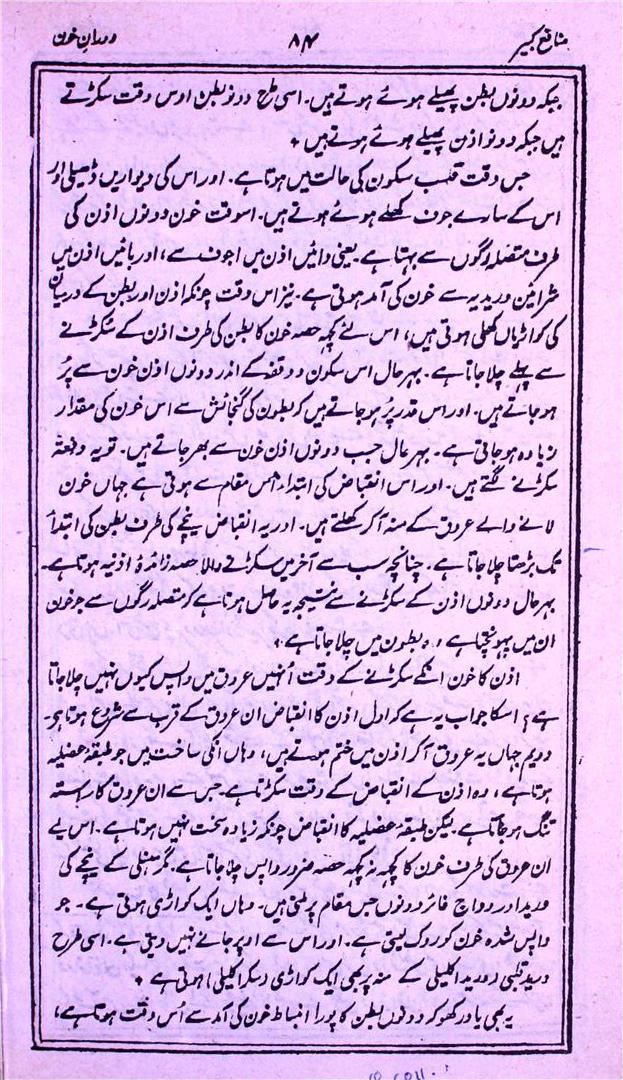 منافع کبیر ۸۴ دوران خون
جبکہ دونوں بطن پھیلے ہوئے ہوتے ہیں۔ اسی طرح دونو بطن اوس وقت سکڑتے
ہیں جبکہ دونو اذن پھیلے ہوئے ہوتے ہیں ۔
جس وقت قلب سکون کی حالت میں ہوتا ہے۔ اور اس کی دیواریں ڈھیلی اور
اس کے سارے جوف کھلے ہوئے ہوتے ہیں۔ اسوقت خون دونوں اذن کی
طرف متصلہ رگوں سے بہتا ہے۔ یعنی دائیں اذن میں اجوف سے، اور بائیں اذن میں
شرائین وریدیہ سے خون کی آمد ہوتی ہے۔ نیز اس وقت چونکہ اذن اور بطن کے درمیان
کی کواڑیاں کھلی ہوتی ہیں، اس لئے کچھ حصہ خون کا بطن کی طرف اذن کے سکڑنے
سے پہلے چلا جاتا ہے۔ بہر حال اس سکون و وقفہ کے اندر دونوں اذن خون سے پُر
ہو جاتے ہیں۔ اور اس قدر پُر ہو جاتے ہیں کہ بطون کی گنجائش سے اس خون کی مقدار
زیادہ ہو جاتی ہے۔ بہر حال جب دونوں اذن خون سے بھر جاتے ہیں۔ تو یہ دفعۃً
سکڑنے لگتے ہیں۔ اور اس انقباض کی ابتداء اس مقام سے ہوتی ہے جہاں خون
لانے والے عروق کے منہ آکر کھلتے ہیں۔ اور یہ انقباض نیچے کی طرف بطن کی ابتدا
تک بڑھتا چلا جاتا ہے۔ چنانچہ سب سے آخر میں سکڑنے والا حصہ زائدۂ اذنیہ ہوتا ہے۔
بہر حال دونوں اذن کے سکڑنے سے نتیجہ یہ حاصل ہوتا ہے کہ متصلہ رگوں سے جو خون
ان میں پہونچتا ہے، وہ بطون میں چلا جاتا ہے۔
اذن کا خون انکے سکڑنے کے وقت اُنہیں عروق میں واپس کیوں نہیں چلا جاتا
ہے؟ اسکا جواب یہ ہے کہ اول اذن کا انقباض ان عروق کے قرب سے شروع ہوتا ہو۔
دویم جہاں یہ عروق آکر اذن میں ختم ہوتے ہیں، وہاں انکی ساخت میں جو طبقۂ عضلیہ
ہوتا ہے، وہ اذن کے انقباض کے وقت سکڑتا ہے۔ جس سے ان عروق کا رستہ
تنگ ہو جاتا ہے۔ لیکن طبقۂ عضلیہ کا انقباض چونکہ زیادہ سخت نہیں ہوتا ہے۔ اس لیے
ان عروق کی طرف خون کا کچھ نہ کچھ حصہ ضرور واپس چلا جاتا ہے۔ گر ہنسلی کے نیچے کی
ورید اور وداج غائر دونوں جس مقام پر ملتی ہیں۔ وہاں ایک کواڑی ہوتی ہے۔ جو
واپس شدہ خون کو روک لیتی ہے۔ اور اس سے اوپر جانے نہیں دیتی ہے۔ اسی طرح
ورید قلبی (ورید اکلیلی کے منہ پر بھی ایک کواڑی (سکر اکلیلی) ہوتی ہے ۔
یہ بھی یاد رکھو کہ دونوں بطن کا پورا انبساط خون کی آمد سے اُس وقت ہوتا ہے،